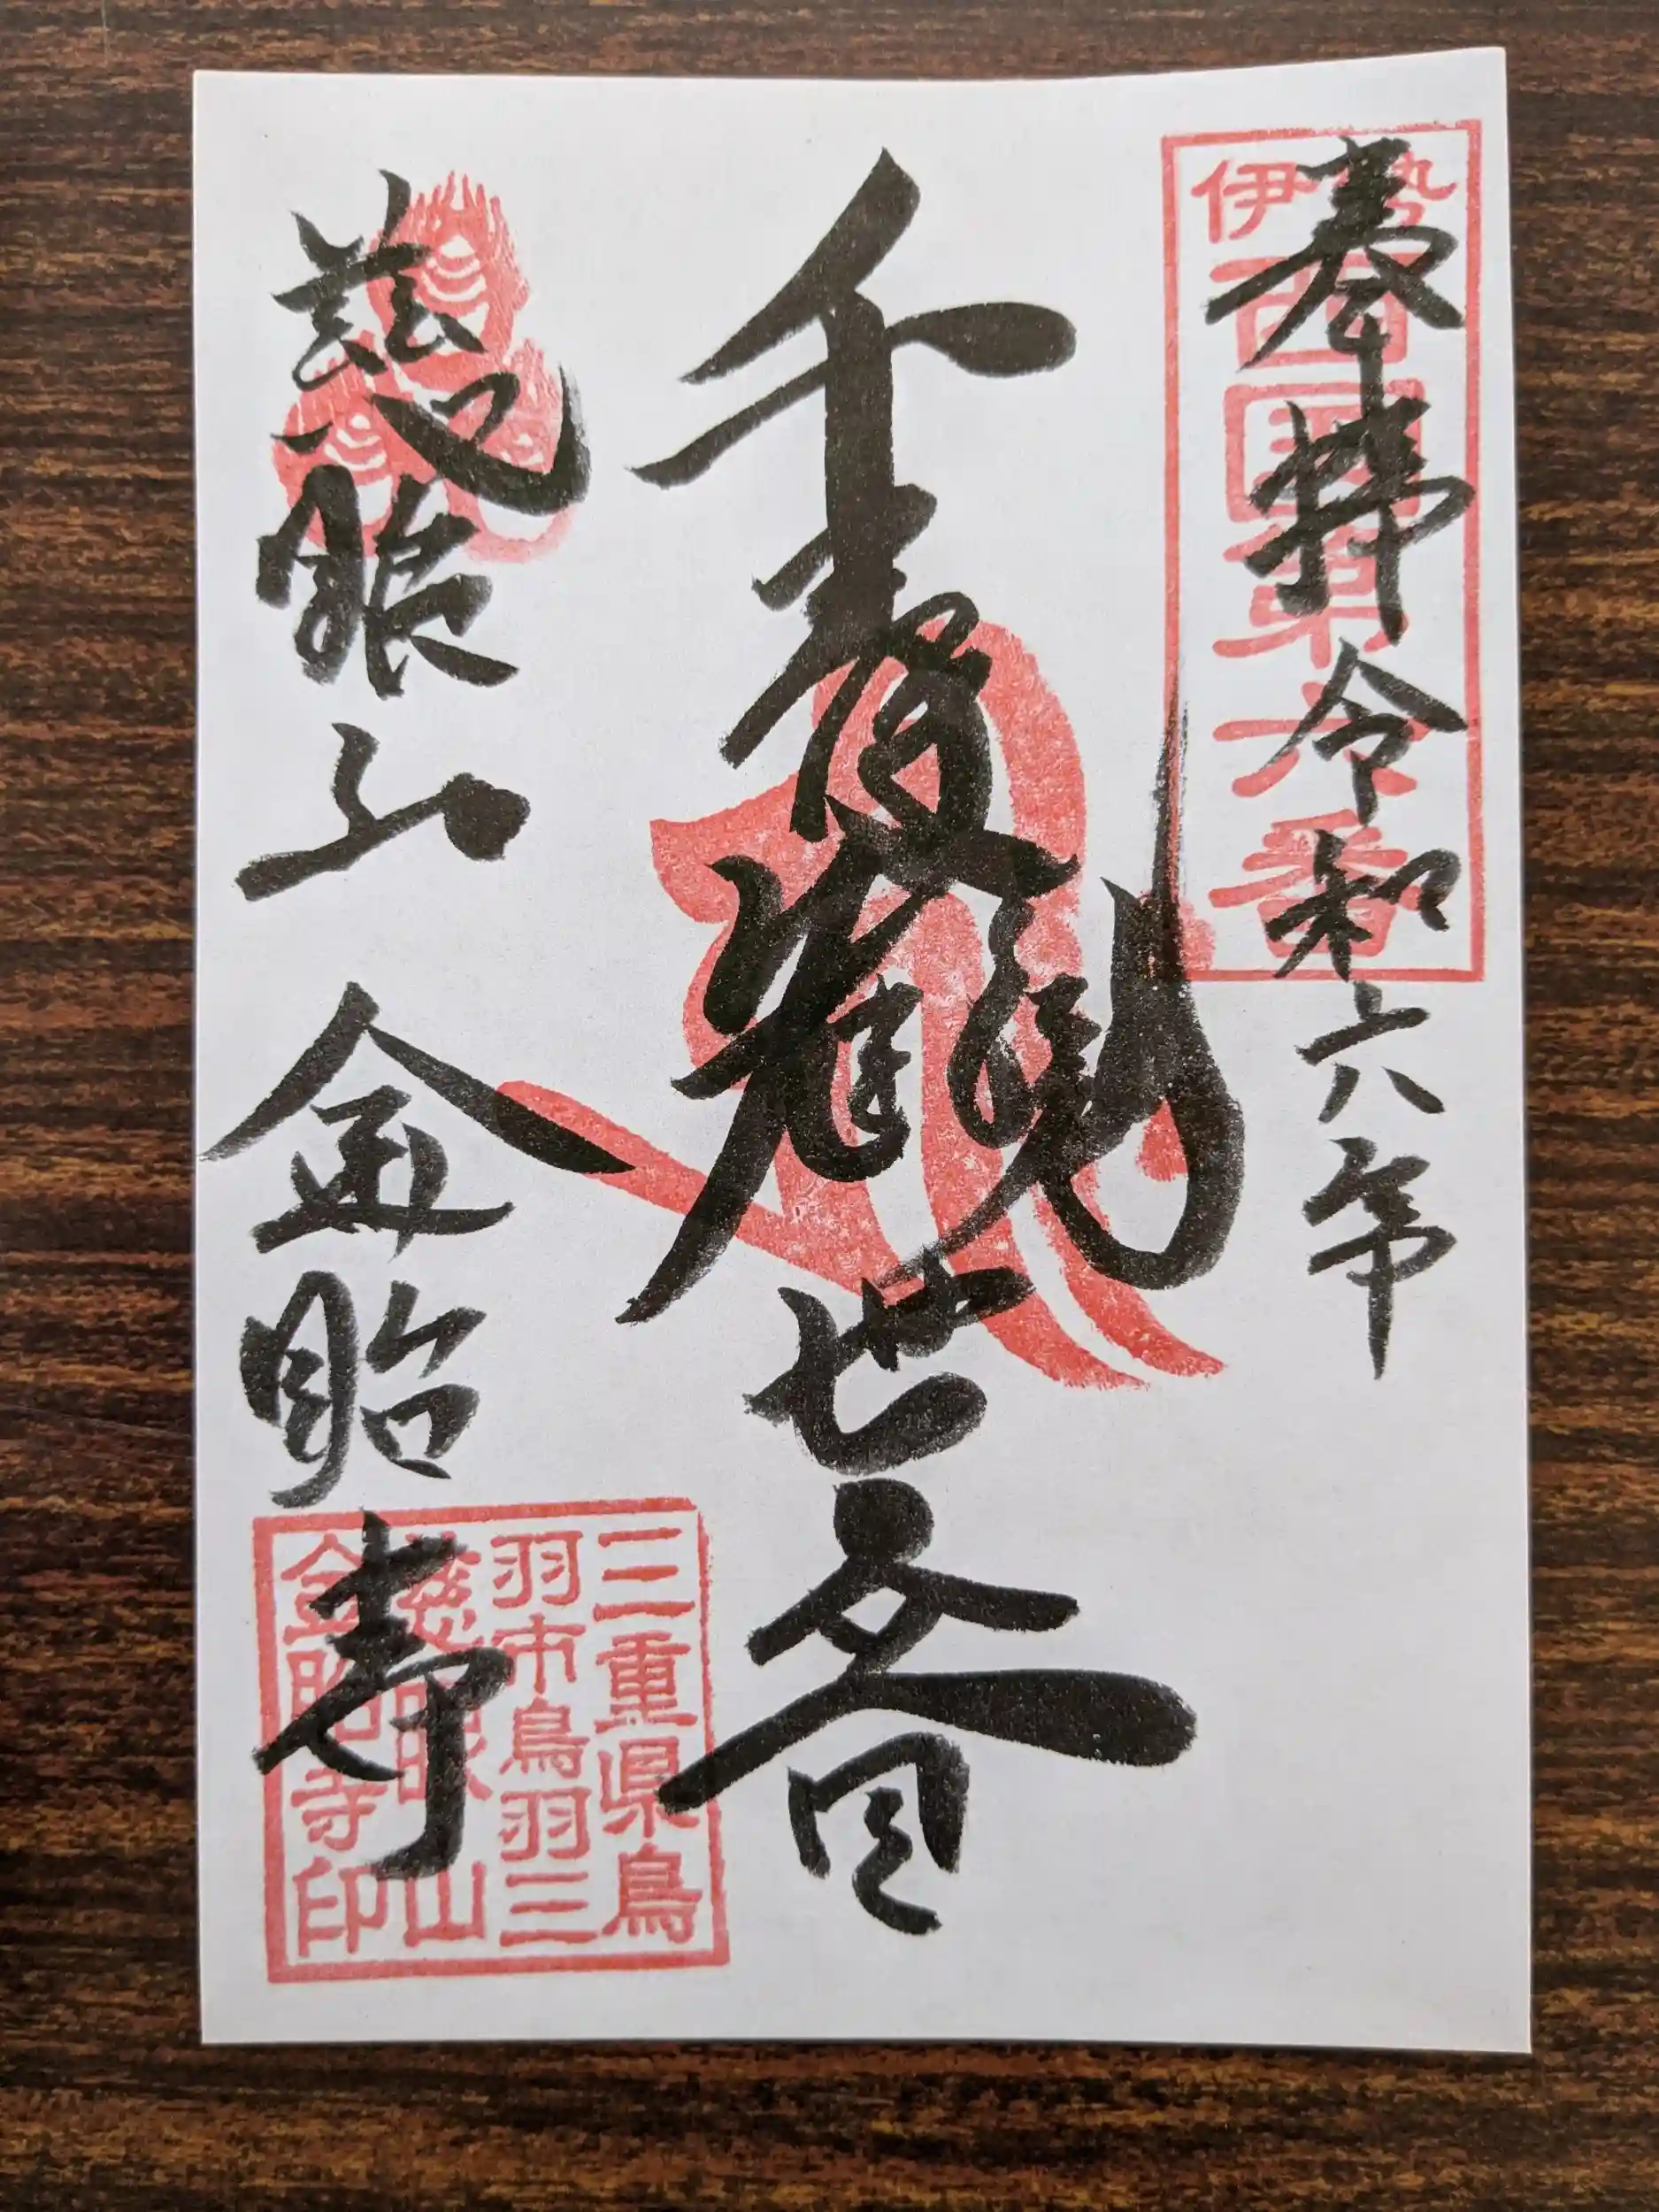 伊勢
西国第六番
奉拝 令和六年
千 觀世音
慈眼山 金胎寺
三重県鳥
羽市鳥羽三
慈眼山
金胎寺印